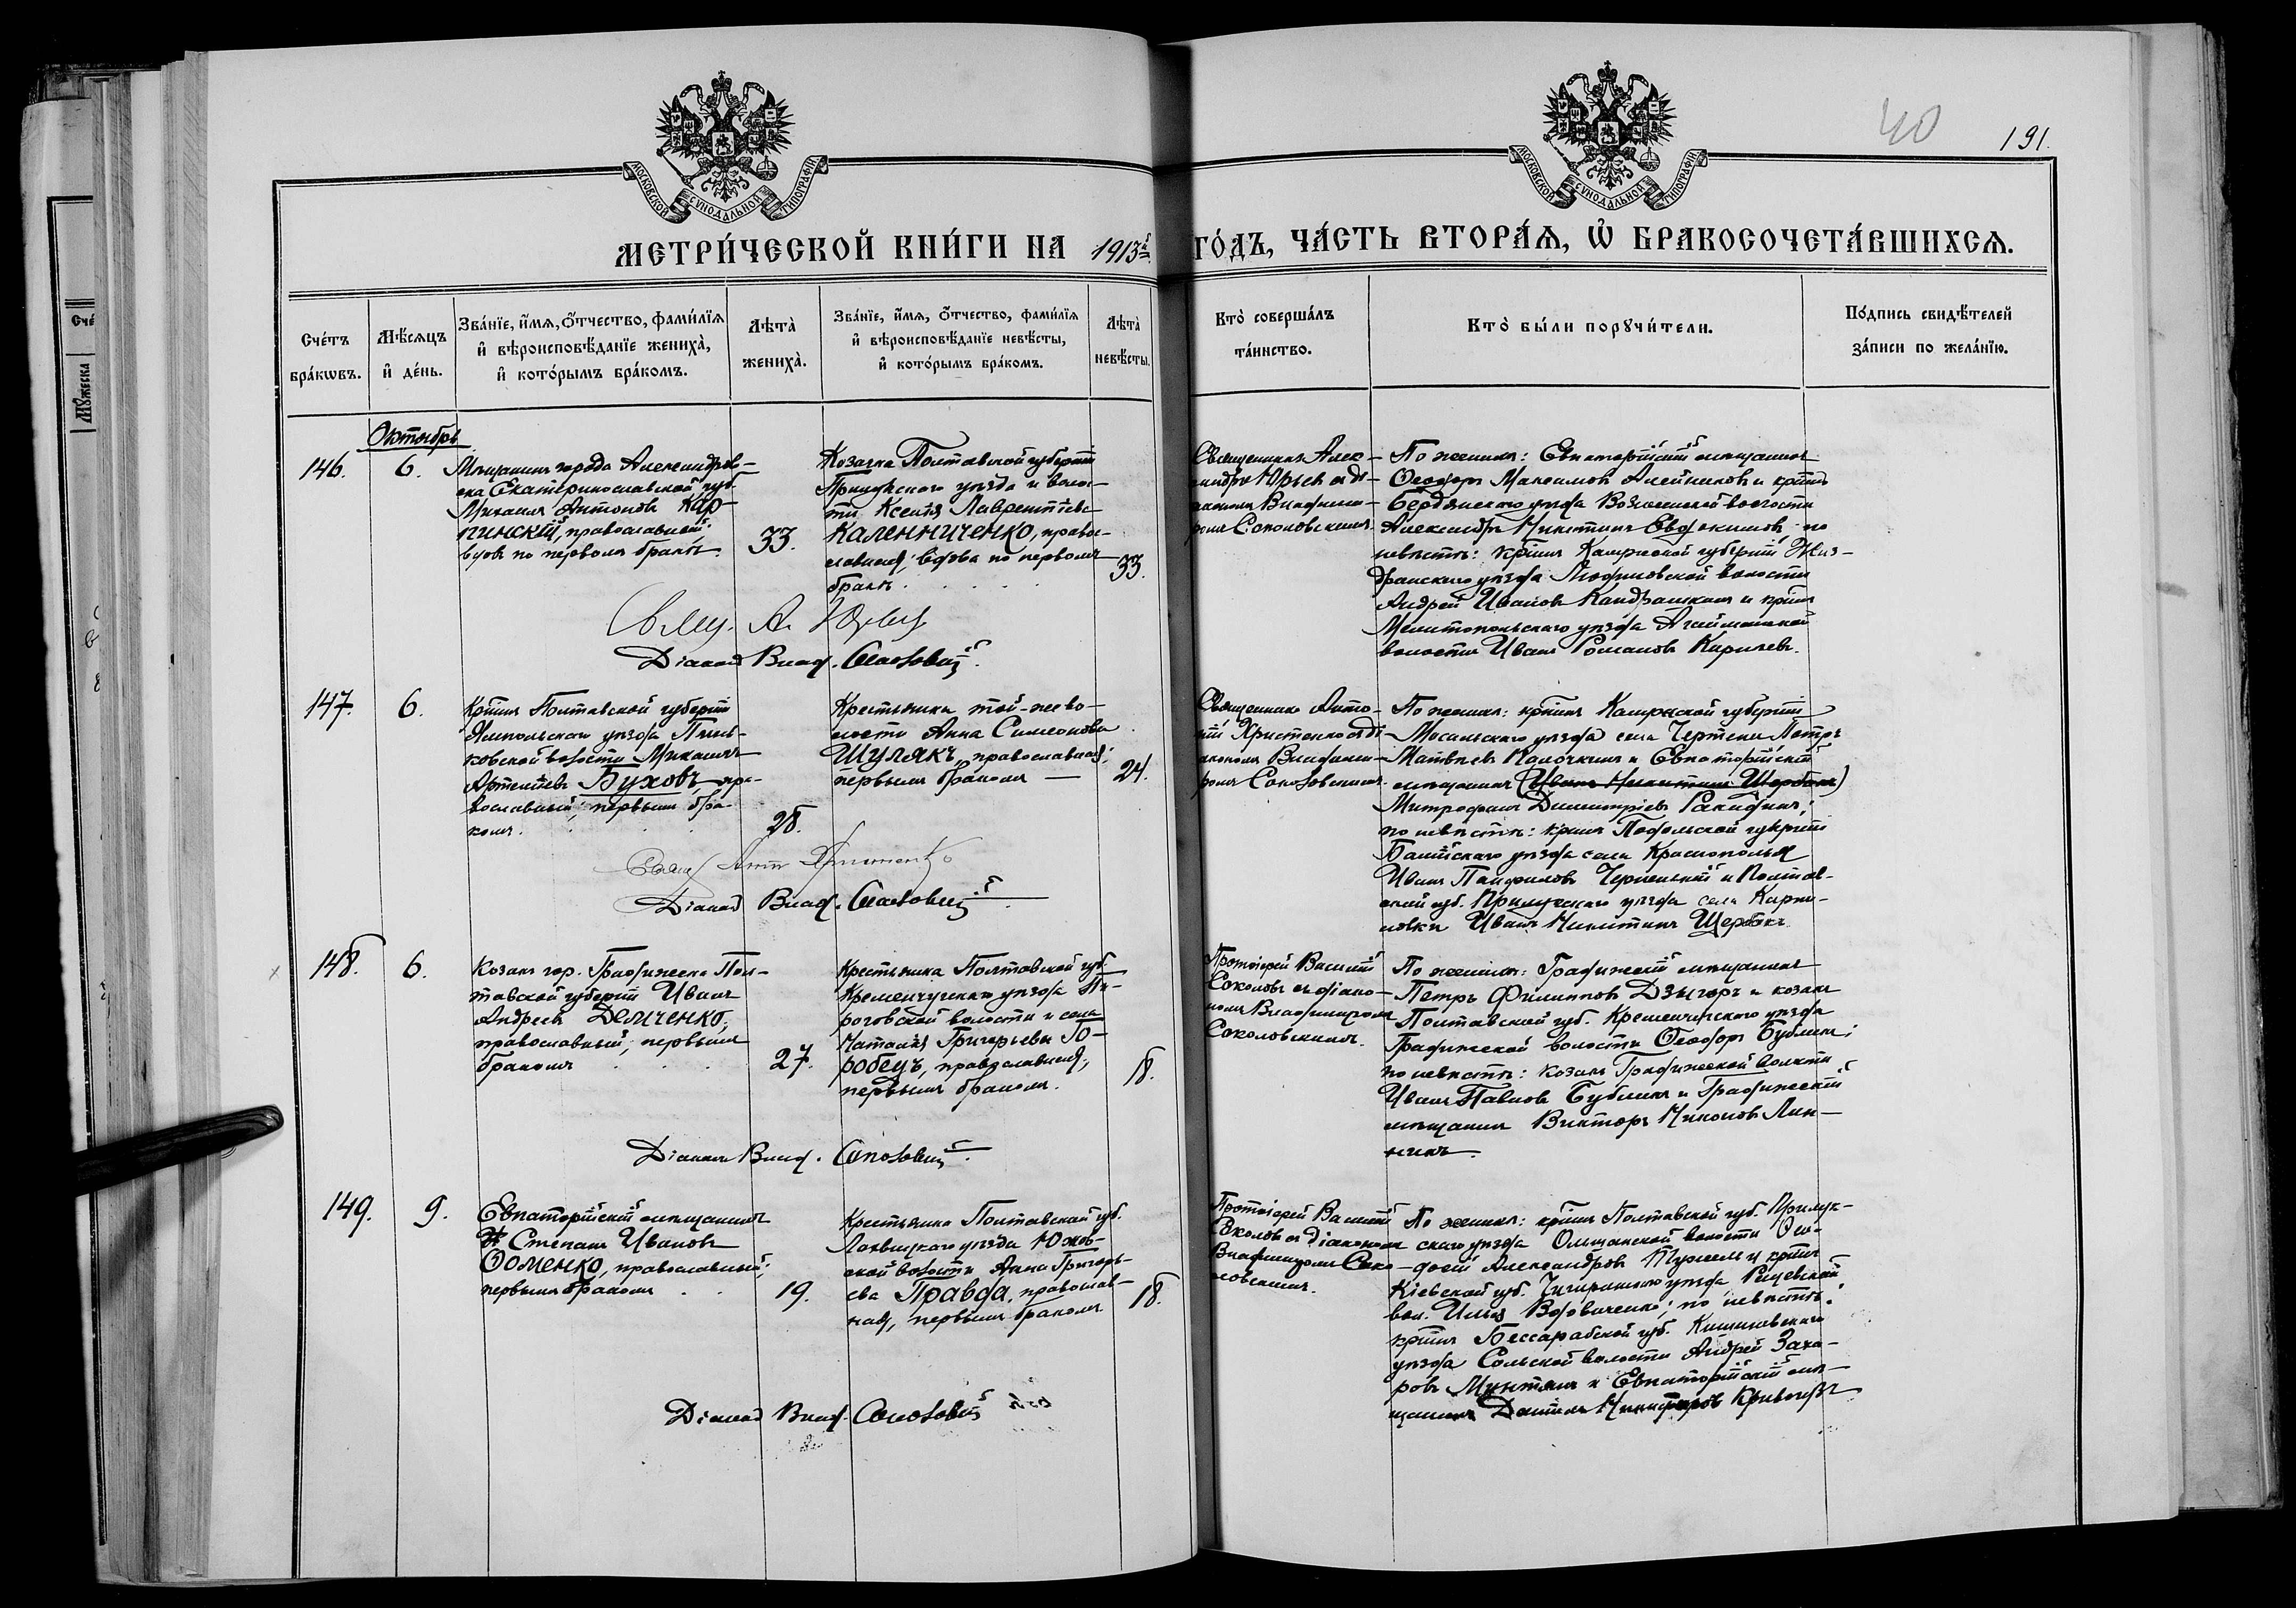 40
191.
МОСКОВСКОЙ СѴНОДАЛЬНОЙ ТИПОГРАФІИ
МОСКОВСКОЙ СѴНОДАЛЬНОЙ ТИПОГРАФІИ
МЕТРИ́ЧЕСКОЙ КНИ́ГИ НА 1913й ГО́ДЪ, ЧА́СТЬ ВТОРА́Я, Ѡ҆ БРАКОСОЧЕТА́ВШИХСЯ.
Сче́тъ
бра́кѡвъ.
Мѣ́сяцъ
и҆ де́нь.
Зва́нїе, и҆́мя, ѻ҆́тчество, фами́лїя
и҆ вѣроисповѣ́данїе жениха̀,
и҆ кото́рымъ бра́комъ.
Лѣта̀
жениха̀.
Зва́нїе, и҆́мя, ѻ҆́тчество, фами́лїя
и҆ вѣроисповѣ́данїе невѣ́сты,
и҆ кото́рымъ бра́комъ.
Лѣта̀
невѣ́сты.
Кто̀ соверша́лъ
та́инство.
Кто̀ бы́ли порꙋчи́тели.
По́дпись свидѣ́телей
за́писи по жела́нїю.
Октябрь
146.
6.
Мѣщанинъ города Александров-
ска Екатеринославской губ.
Михаилъ Антоновъ Кар-
пинскій, православный;
вдовъ по первомъ бракѣ.
33.
Козачка Полтавской губерніи
Прилукскаго уѣзда и волос-
ти Ксенія Лаврентіева
Каленниченко, право-
славная; вдова по первомъ
бракѣ
33.
Священникъ Алек-
сандръ Юрьевъ съ ді-
акономъ Владими-
ромъ Соколовскимъ.
По женихѣ: Евпаторійскій мѣщанинъ
Ѳеодоръ Максимовъ Алейниковъ и крнинъ
Бердянскаго уѣзда Вознесенской волости
Александръ Никитинъ Евдокимовъ; по
невѣстѣ: крнинъ Калужской губерніи Жиз-
дринскаго уѣзда Людиновской волости
Андрей Ивановъ Кандрашкинъ и крнинъ
Мелитопольскаго уѣзда Агайманской
волости Иванъ Романовъ Киричевъ.
Свящ. А. Юрьевъ
Діаконъ Влад. Соколовскій.
147.
6.
Крнинъ Полтавской губерніи
волости Михаилъ
Артемьевъ Буховъ, пра-
вославный; первымъ бра-
комъ.
28.
Крестьянка той-же во-
лости Анна Симеонова
Шулякъ, православная;
первымъ бракомъ
24.
Священникъ Анто-
ній Христенко съ ді-
акономъ Владими-
ромъ Соколовскимъ.
По женихѣ: крнинъ Калужской губерніи
Мосальскаго уѣзда села Чертени Петръ
Матвѣевъ Палочкинъ и Евпаторійскій
мѣщанинъ (Иванъ Никитинъ Щербакъ)
Митрофанъ Димитріевъ Ракидинъ;
по невѣстѣ: крнинъ Подольской губерніи
Балтскаго уѣзда села Краснополья
Иванъ Панфиловъ Чернецкій и Полтав-
ской губ. Прилукскаго уѣзда села Карпи-
ловки Иванъ Никитинъ Щербакъ.
Свящ. Ант. Христенко
Діаконъ Влад. Соколовскій.
148.
6.
Козакъ гор. Градижска Пол-
тавской губерніи Иванъ
Андреевъ Демченко,
православный; первымъ
бракомъ
27.
Крестьянка Полтавской губ.
Кременчугскаго уѣзда Пи-
роговской волости и села
Наталія Григорьева Го-
робецъ, православная,
первымъ бракомъ.
18.
Протоіерей Василій
Соколовъ съ діако-
номъ Владиміромъ
Соколовскимъ.
По женихѣ: Градижскій мѣщанинъ
Петръ Филипповъ Дзыгаръ и козакъ
Полтавской губ. Кременчугскаго уѣзда
Градижской волости Ѳеодоръ Бубликъ;
по невѣстѣ: козакъ Градижской волости
Иванъ Павловъ Бубликъ и Градижскій
мѣщанинъ Викторъ Никоновъ Лин-
никъ.
Діаконъ Влад. Соколовскій.
149.
9.
Евпаторійскій мѣщанинъ
Степанъ Ивановъ
Ѳоменко, православный;
первымъ бракомъ
19.
Крестьянка Полтавской губ.
Лохвицкаго уѣзда Юсков-
ской волости Анна Григорь-
ева Правда, православ-
ная, первымъ бракомъ
18.
Протоіерей Василій
Соколовъ съ діакономъ
Владиміромъ Соко-
ловскимъ.
По женихѣ: крнинъ Полтавской губ. Прилук-
скаго уѣзда Ольшанской волости
Александровъ и крнинъ
Кіевской губ. Чигиринскаго уѣзда
вол. Илья Вдовиченко; по невѣстѣ:
крнинъ Бессарабской губ. Кишиневскаго
уѣзда волости Андрей Заха-
ровъ Мунтянъ и Евпаторійскій мѣ-
щанинъ Даніилъ Никифоровъ
Діаконъ Влад. Соколовскій